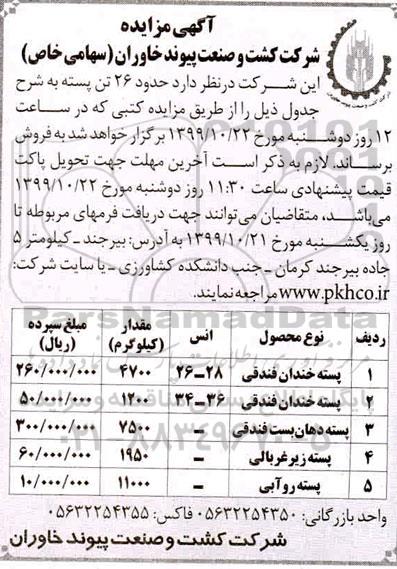 آگهی مزایده
شرکت کشت و صنعت پیوند خاوران (سهامی خاص)
این شرکت در نظر دارد حدود ۲۶ تن پسته به شرح
جدول ذیل را از طریق مزایده کتبی که در ساعت
۱۲ روز دوشنبه مورخ ۱۳۹۹/۱۰/۲۲ برگزار خواهد شد به فروش
برساند. لازم به ذکر است آخرین مهلت جهت تحویل پاکت
قیمت پیشنهادی ساعت ۱۱:۳۰ روز دوشنبه مورخ ۱۳۹۹/۱۰/۲۲
می‌باشد، متقاضیان می‌توانند جهت دریافت فرمهای مربوطه تا
روز یکشنبه مورخ ۱۳۹۹/۱۰/۲۱ به آدرس: بیرجند ـ کیلومتر ۵
جاده بیرجند کرمان ـ جنب دانشکده کشاورزی ـ یا سایت شرکت:
www.pkhco.ir مراجعه نمایند.
ردیف نوع محصول انس مقدار (کیلوگرم) مبلغ سپرده (ریال)
۱ پسته خندان فندقی ۲۸ـ۲۶ ۴۷۰۰ ۲۶۰/۰۰۰/۰۰۰
۲ پسته خندان فندقی ۳۶ـ۳۴ ۱۲۰۰ ۵۰/۰۰۰/۰۰۰
۳ پسته دهان بست فندقی ـ ۷۵۰۰ ۳۰۰/۰۰۰/۰۰۰
۴ پسته زیر غربالی ـ ۱۹۵۰ ۶۰/۰۰۰/۰۰۰
۵ پسته روآبی ـ ۱۱۰۰۰ ۱۰/۰۰۰/۰۰۰
واحد بازرگانی: ۰۵۶۳۲۲۵۴۳۵۰ فاکس: ۰۵۶۳۲۲۵۴۳۵۵
شرکت کشت و صنعت پیوند خاوران
ParsNamadData
۰۲۱-۸۸۳۴۹۶۷۰-۵